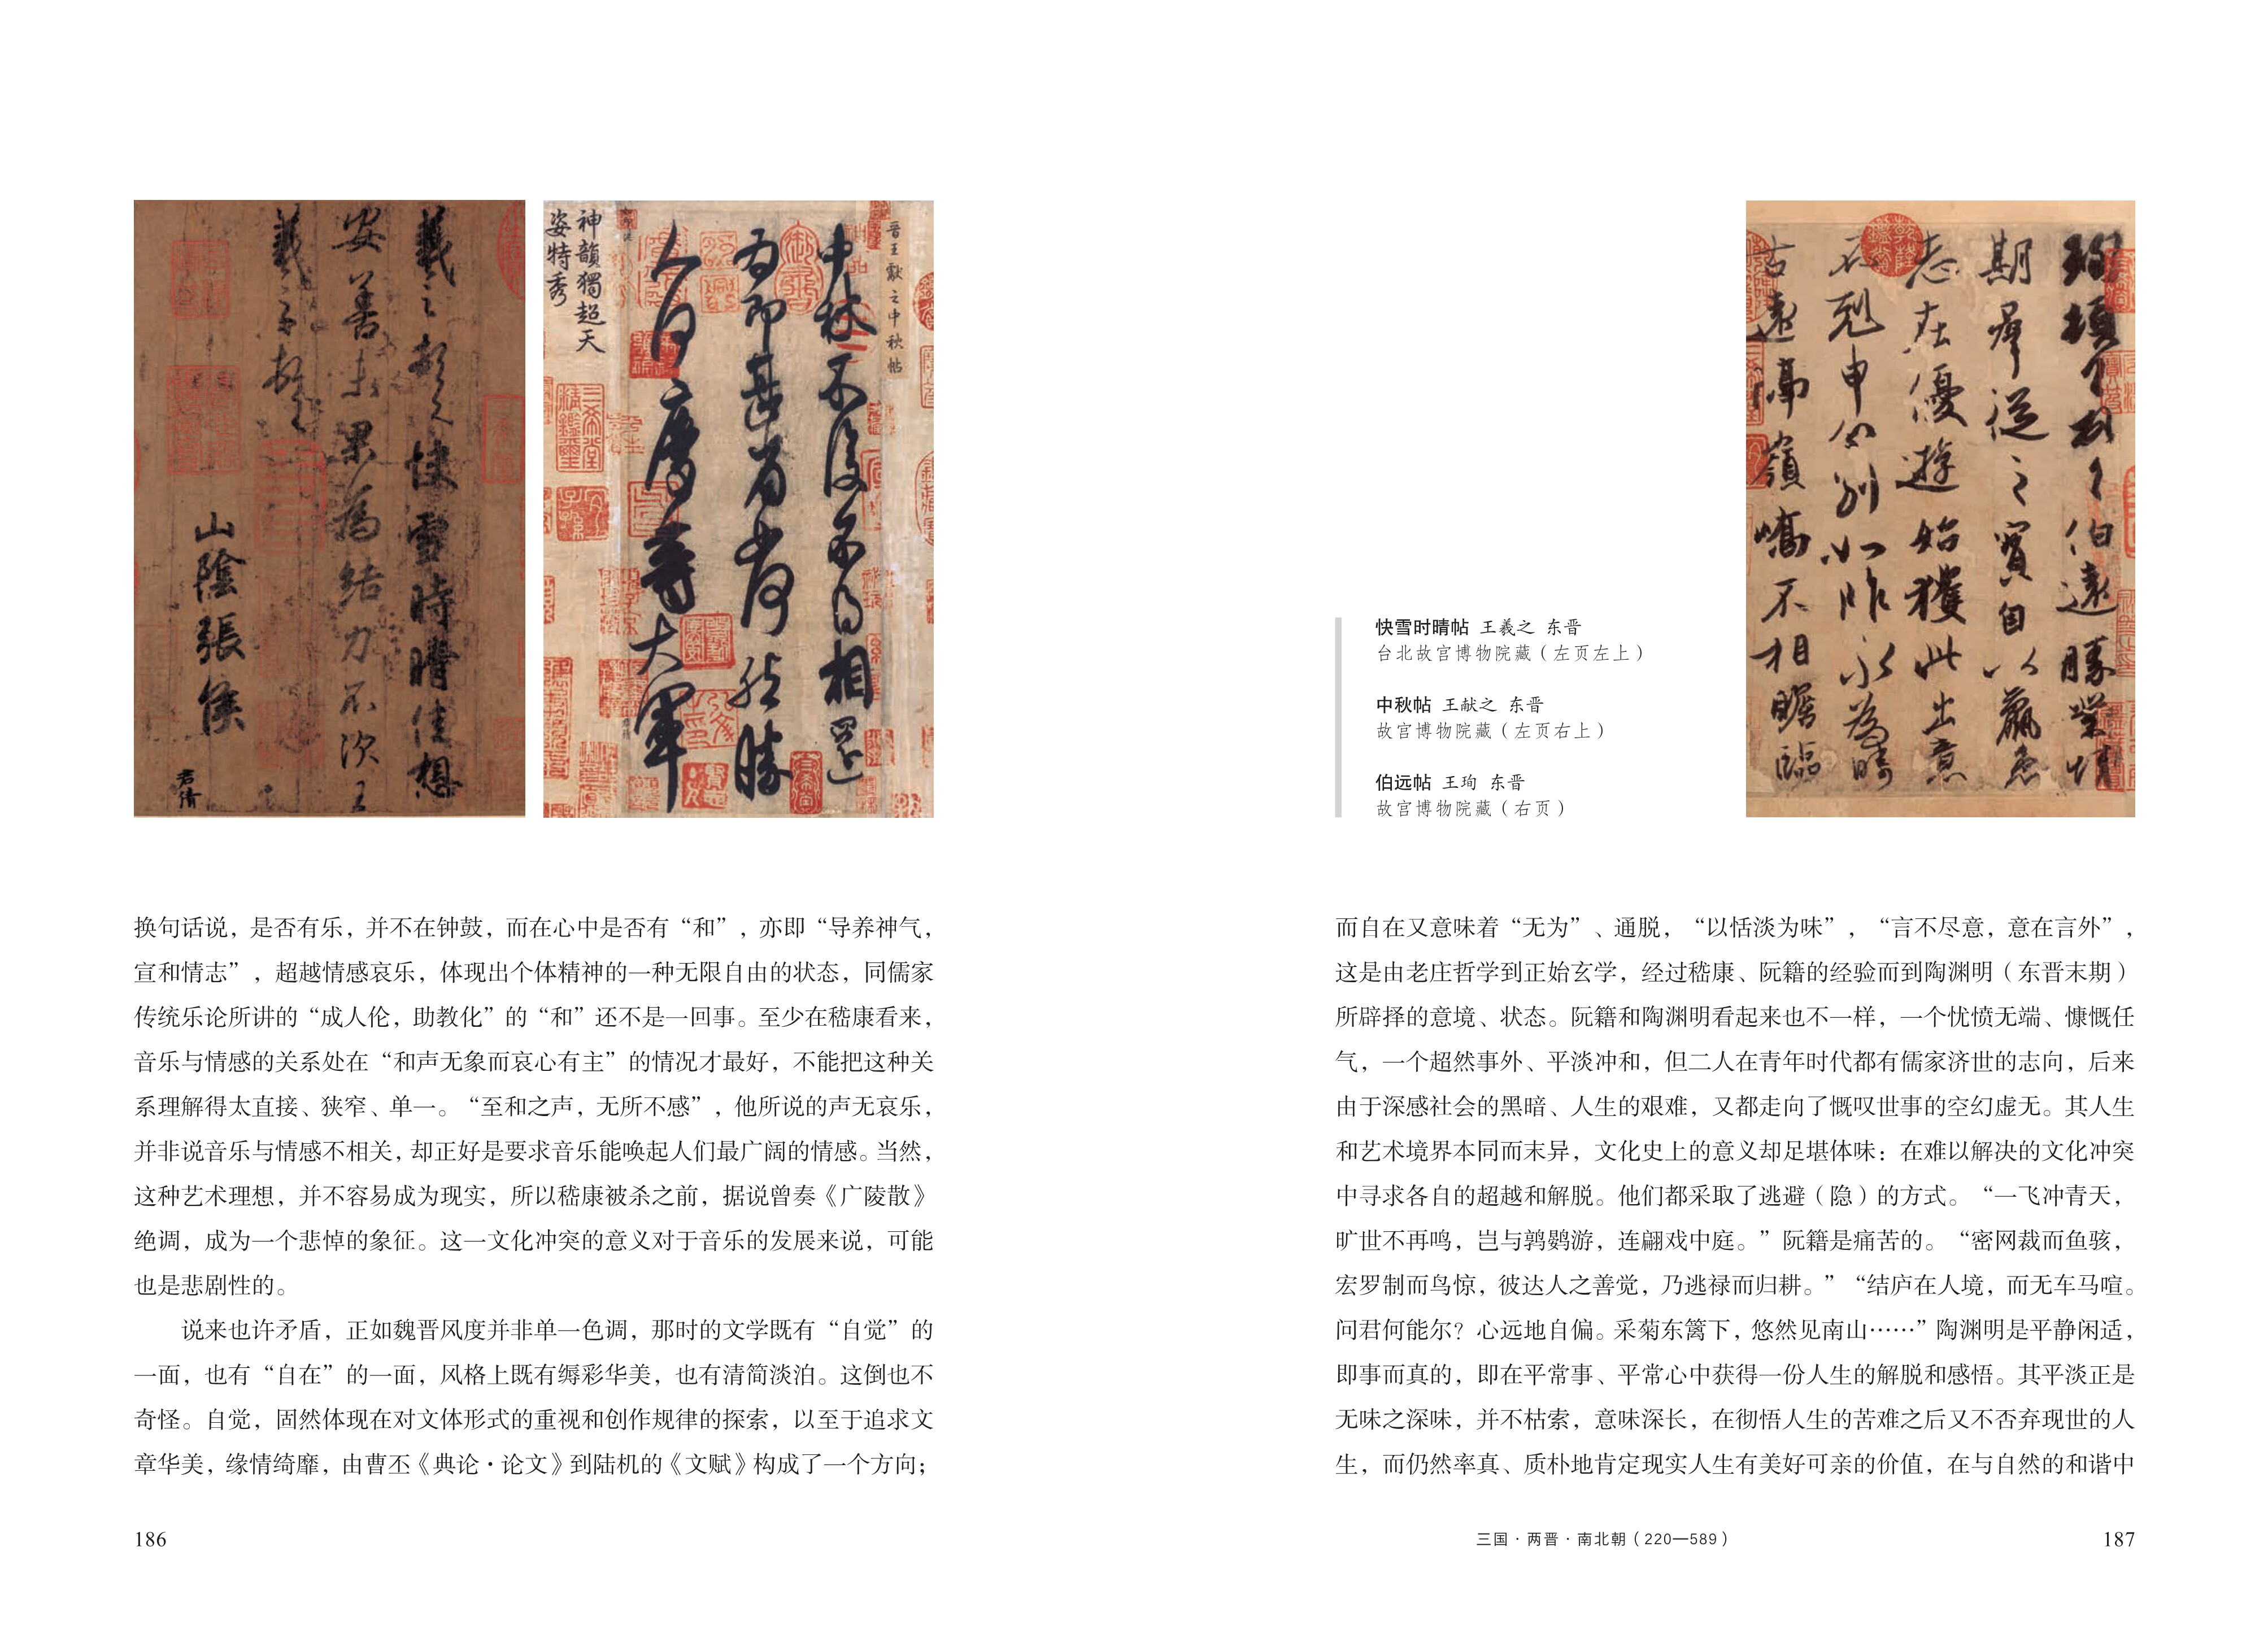 羲之頓首快雪時晴佳想
安善未果為結力不次王
羲之頓首
山陰張侯
君倩
晋王獻之中秋帖
中秋不復不得相還
為即甚省如何然勝
人何慶等大軍
神韻獨超天
姿特秀
三希堂精鑑璽
珣頓首頓首伯遠勝業情
期群從之寶自以羸患
志在優遊始獲此出意
不剋申分別如昨永為疇
古遠隔嶺嶠不相瞻臨
快雪时晴帖 王羲之 东晋
台北故宫博物院藏（左页左上）
中秋帖 王献之 东晋
故宫博物院藏（左页右上）
伯远帖 王珣 东晋
故宫博物院藏（右页）
换句话说，是否有乐，并不在钟鼓，而在心中是否有“和”，亦即“导养神气，
宣和情志”，超越情感哀乐，体现出个体精神的一种无限自由的状态，同儒家
传统乐论所讲的“成人伦，助教化”的“和”还不是一回事。至少在嵇康看来，
音乐与情感的关系处在“和声无象而哀心有主”的情况才最好，不能把这种关
系理解得太直接、狭窄、单一。“至和之声，无所不感”，他所说的声无哀乐，
并非说音乐与情感不相关，却正好是要求音乐能唤起人们最广阔的情感。当然，
这种艺术理想，并不容易成为现实，所以嵇康被杀之前，据说曾奏《广陵散》
绝调，成为一个悲悼的象征。这一文化冲突的意义对于音乐的发展来说，可能
也是悲剧性的。
说来也许矛盾，正如魏晋风度并非单一色调，那时的文学既有“自觉”的
一面，也有“自在”的一面，风格上既有缛彩华美，也有清简淡泊。这倒也不
奇怪。自觉，固然体现在对文体形式的重视和创作规律的探索，以至于追求文
章华美，缘情绮靡，由曹丕《典论·论文》到陆机的《文赋》构成了一个方向；
186
而自在又意味着“无为”、通脱，“以恬淡为味”，“言不尽意，意在言外”，
这是由老庄哲学到正始玄学，经过嵇康、阮籍的经验而到陶渊明（东晋末期）
所辟择的意境、状态。阮籍和陶渊明看起来也不一样，一个忧愤无端、慷慨任
气，一个超然事外、平淡冲和，但二人在青年时代都有儒家济世的志向，后来
由于深感社会的黑暗、人生的艰难，又都走向了慨叹世事的空幻虚无。其人生
和艺术境界本同而末异，文化史上的意义却足堪体味：在难以解决的文化冲突
中寻求各自的超越和解脱。他们都采取了逃避（隐）的方式。“一飞冲青天，
旷世不再鸣，岂与鹑鷃游，连翩戏中庭。”阮籍是痛苦的。“密网裁而鱼骇，
宏罗制而鸟惊，彼达人之善觉，乃逃禄而归耕。”“结庐在人境，而无车马喧。
问君何能尔？心远地自偏。采菊东篱下，悠然见南山……”陶渊明是平静闲适，
即事而真的，即在平常事、平常心中获得一份人生的解脱和感悟。其平淡正是
无味之深味，并不枯索，意味深长，在彻悟人生的苦难之后又不否弃现世的人
生，而仍然率真、质朴地肯定现实人生有美好可亲的价值，在与自然的和谐中
三国·两晋·南北朝（220—589）
187